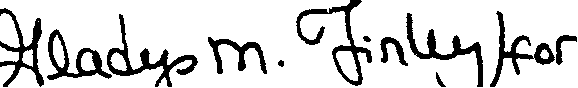 Gladys M. Finley/for